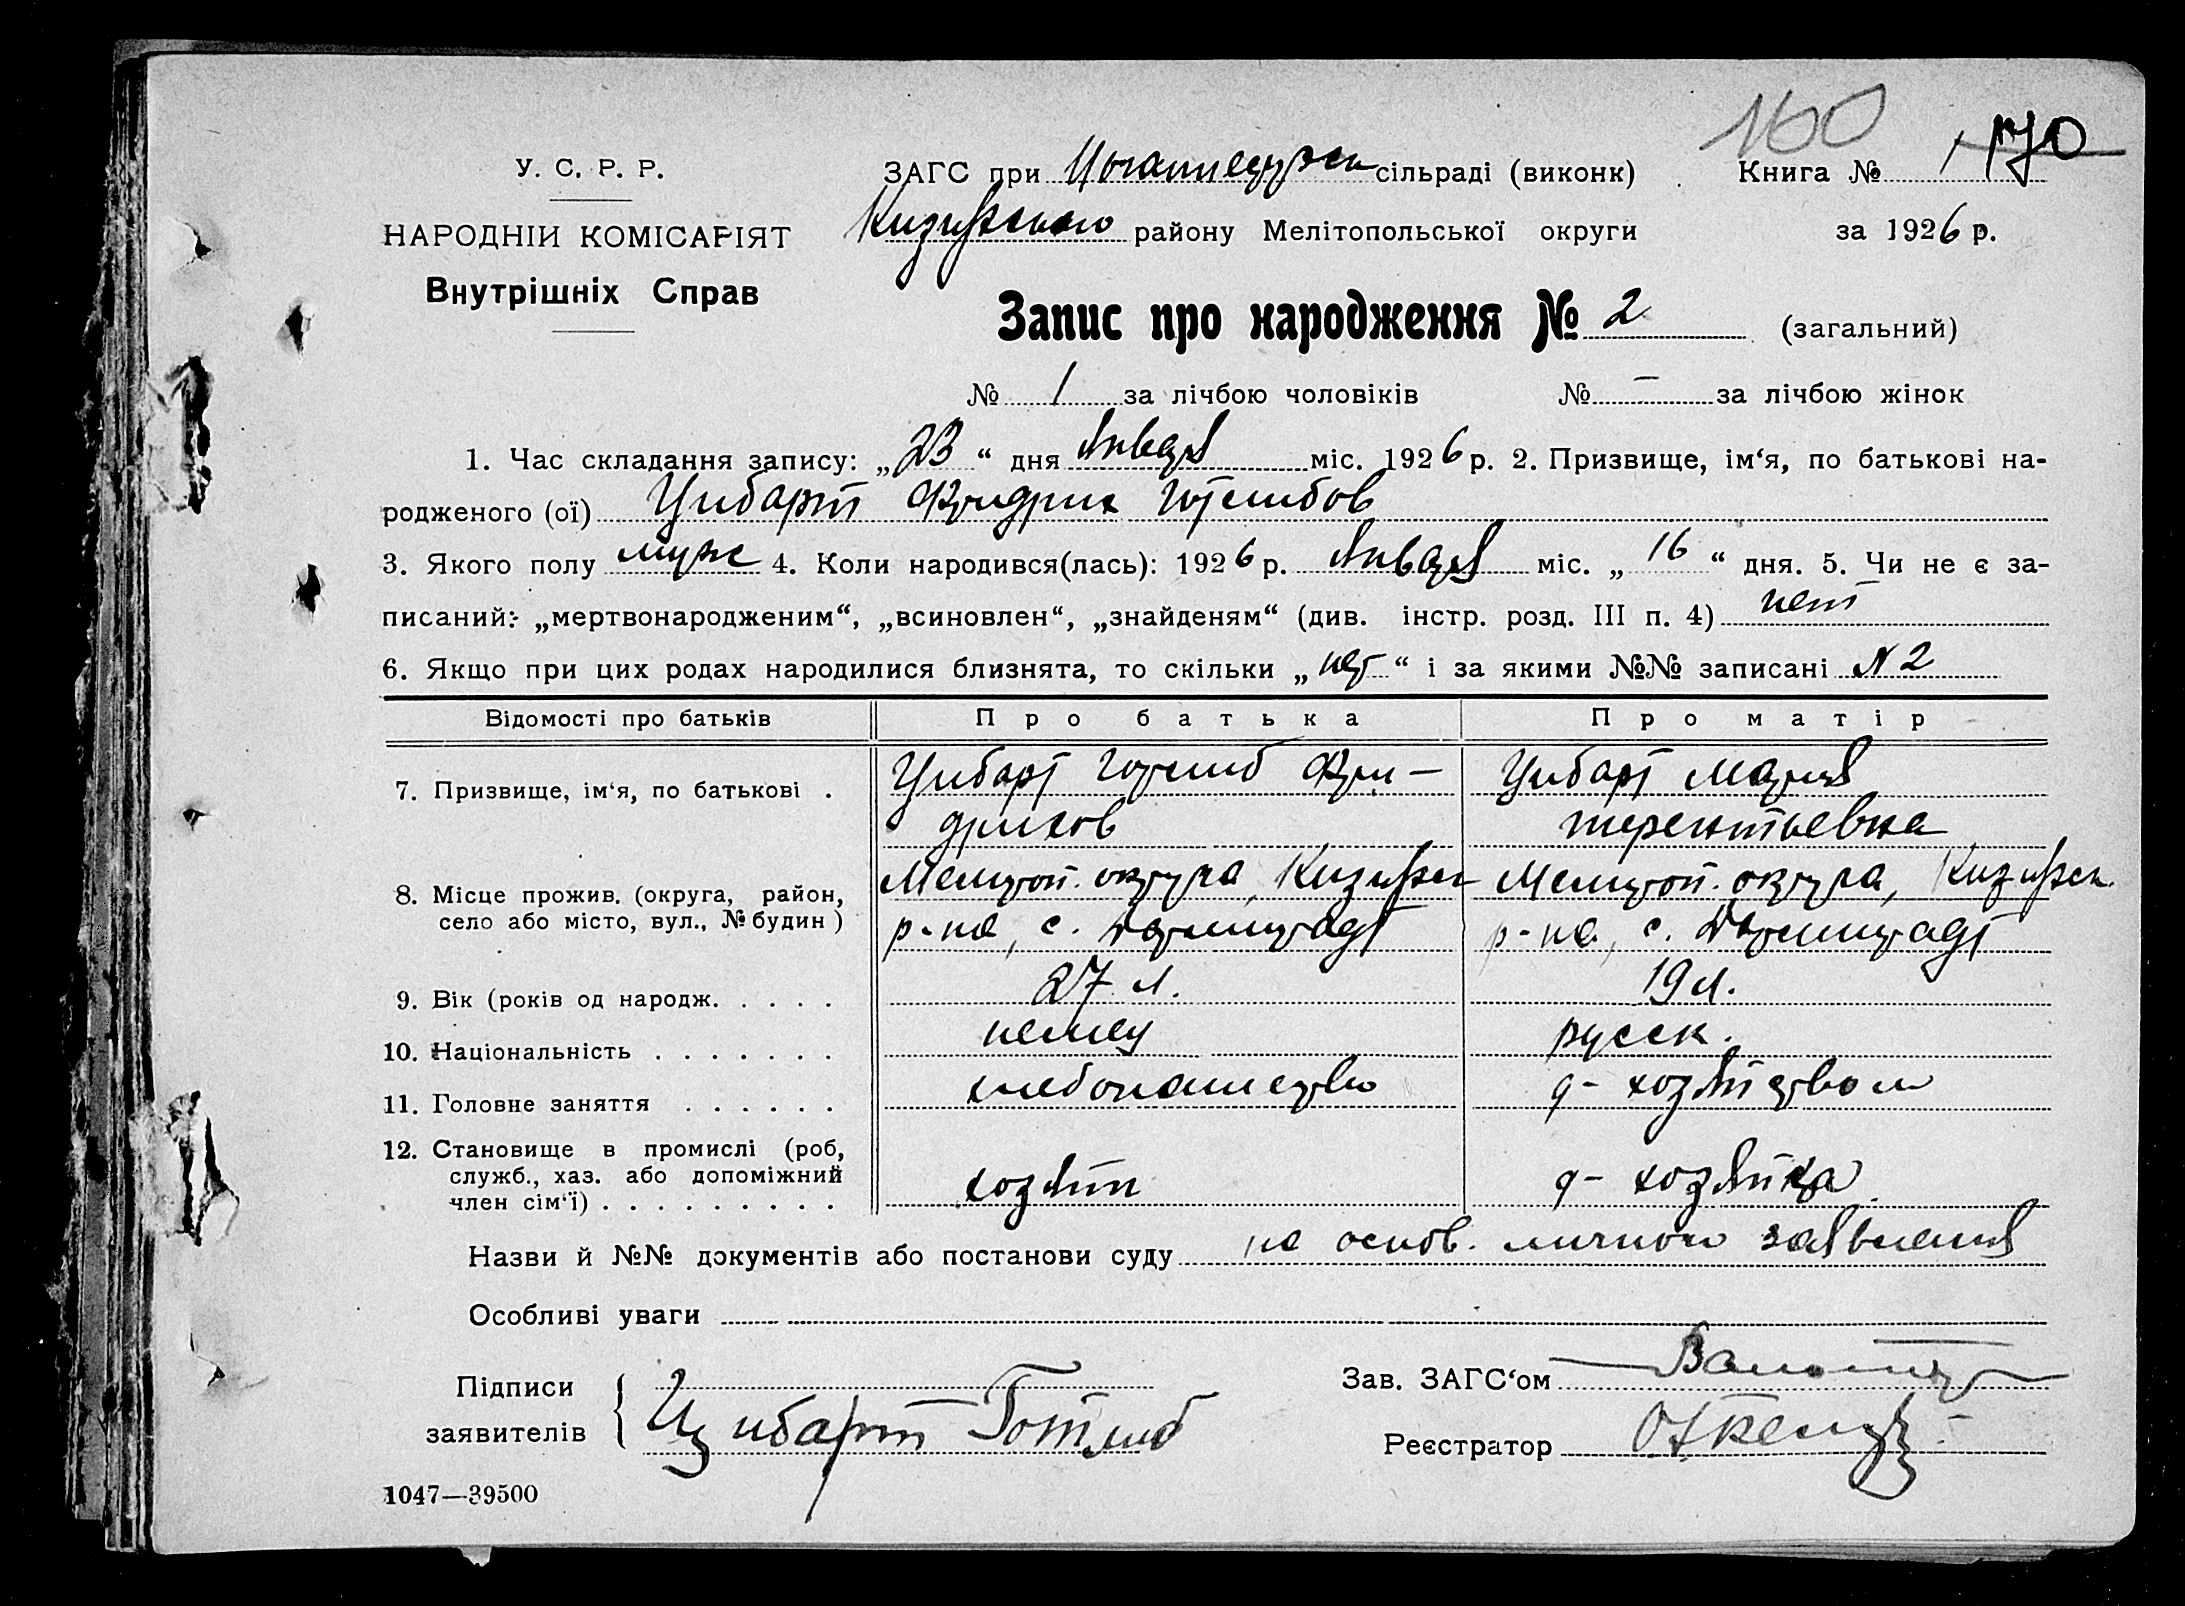 160
170
У. С. Р. Р.
НАРОДНІЙ КОМІСАРІЯТ
Внутрішніх Справ
ЗАГС при сільраді (виконк) Книга № 1
району Мелітопольської округи за 1926 р.
Запис про народження № 2 (загальний)
№ 1 за лічбою чоловіків № — за лічбою жінок
1. Час складання запису: „23“ дня января міс. 1926 р. 2. Призвище, ім‘я, по батькові на-
родженого (ої) Цибарт Фридрих Готлибов
3. Якого полу муж 4. Коли народився(лась): 1926 р. января міс. „16“ дня. 5. Чи не є за-
писаний: „мертвонародженим“, „всиновлен“, „знайденям“ (див. інстр. розд. III п. 4) нет
6. Якщо при цих родах народилися близнята, то скільки „нет“ і за якими №№ записані N 2
Відомості про батьків Про батька Про матір
7. Призвище, ім‘я, по батькові . Цибарт Готлиб Фри- Цибарт Мария
дрихов терентьевна
8. Місце прожив. (округа, район, Мелитоп. округа, Кизиярск Мелитоп. округа, Кизиярск.
село або місто, вул., № будин ) р-на, с. Дармштадт р-на, с. Дармштадт
9. Вік (років од народж. . . . . 27 л. 19 л.
10. Національність . . . . . . . немец русск.
11. Головне заняття . . . . . . хлебопашество д- хозяйством
12. Становище в промислі (роб,
служб., хаз. або допоміжний
член сім‘ї) . . . . . . . . . хозяин д- хозяйка
Назви й №№ документів або постанови суду на основ. личного заявления
Особливі уваги
Підписи
заявителів Цибарт Готлиб
Зав. ЗАГС‘ом
Реєстратор
1047—39500